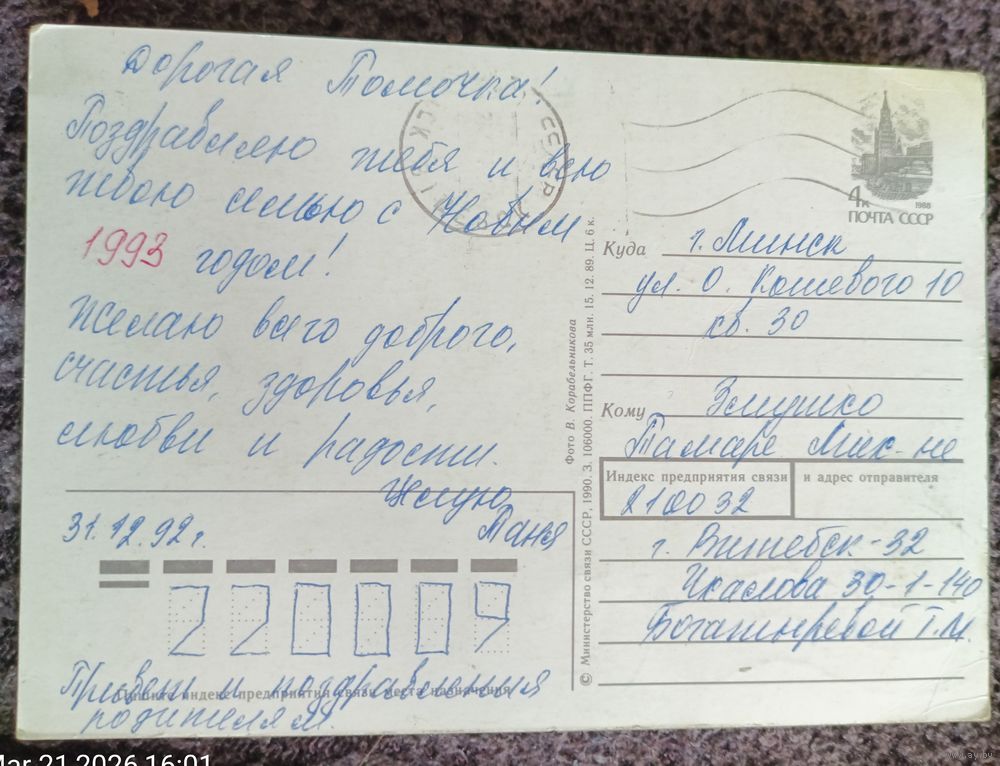 Дорогая Томочка!
Поздравляю тебя и всю
твою семью с Новым
1993 годом!
Желаю всего доброго,
счастья, здоровья,
любви и радости.
Целую,
Таня
31.12.92г.
220009
Пишите индекс предприятия связи места назначения
Привет и поздравления
родителям.
4к
1988
ПОЧТА СССР
Куда г. Минск
ул. О. Кошевого 10
кв. 30
Кому
Тамаре Мик-не
Индекс предприятия связи и адрес отправителя
210032
г. Витебск-32
30-1-140
Богатыревой Т.М.
Фото В. Корабельникова
© Министерство связи СССР, 1990. З. 106000. ППФГ. Т. 35 млн. 15. 12. 89. Ц. 6 к.
Mar 21 2026 16:01
www.ay.by